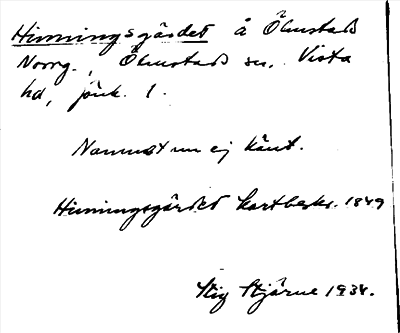 Hinningsgärdet å Ölmstad
Norrg., Ölmstad sn, Vista
hd, Jönk. l.
Namnet nu ej känt.
Hinningsgärdet Kartbeskr. 1849
Stig Stjärne 1934.